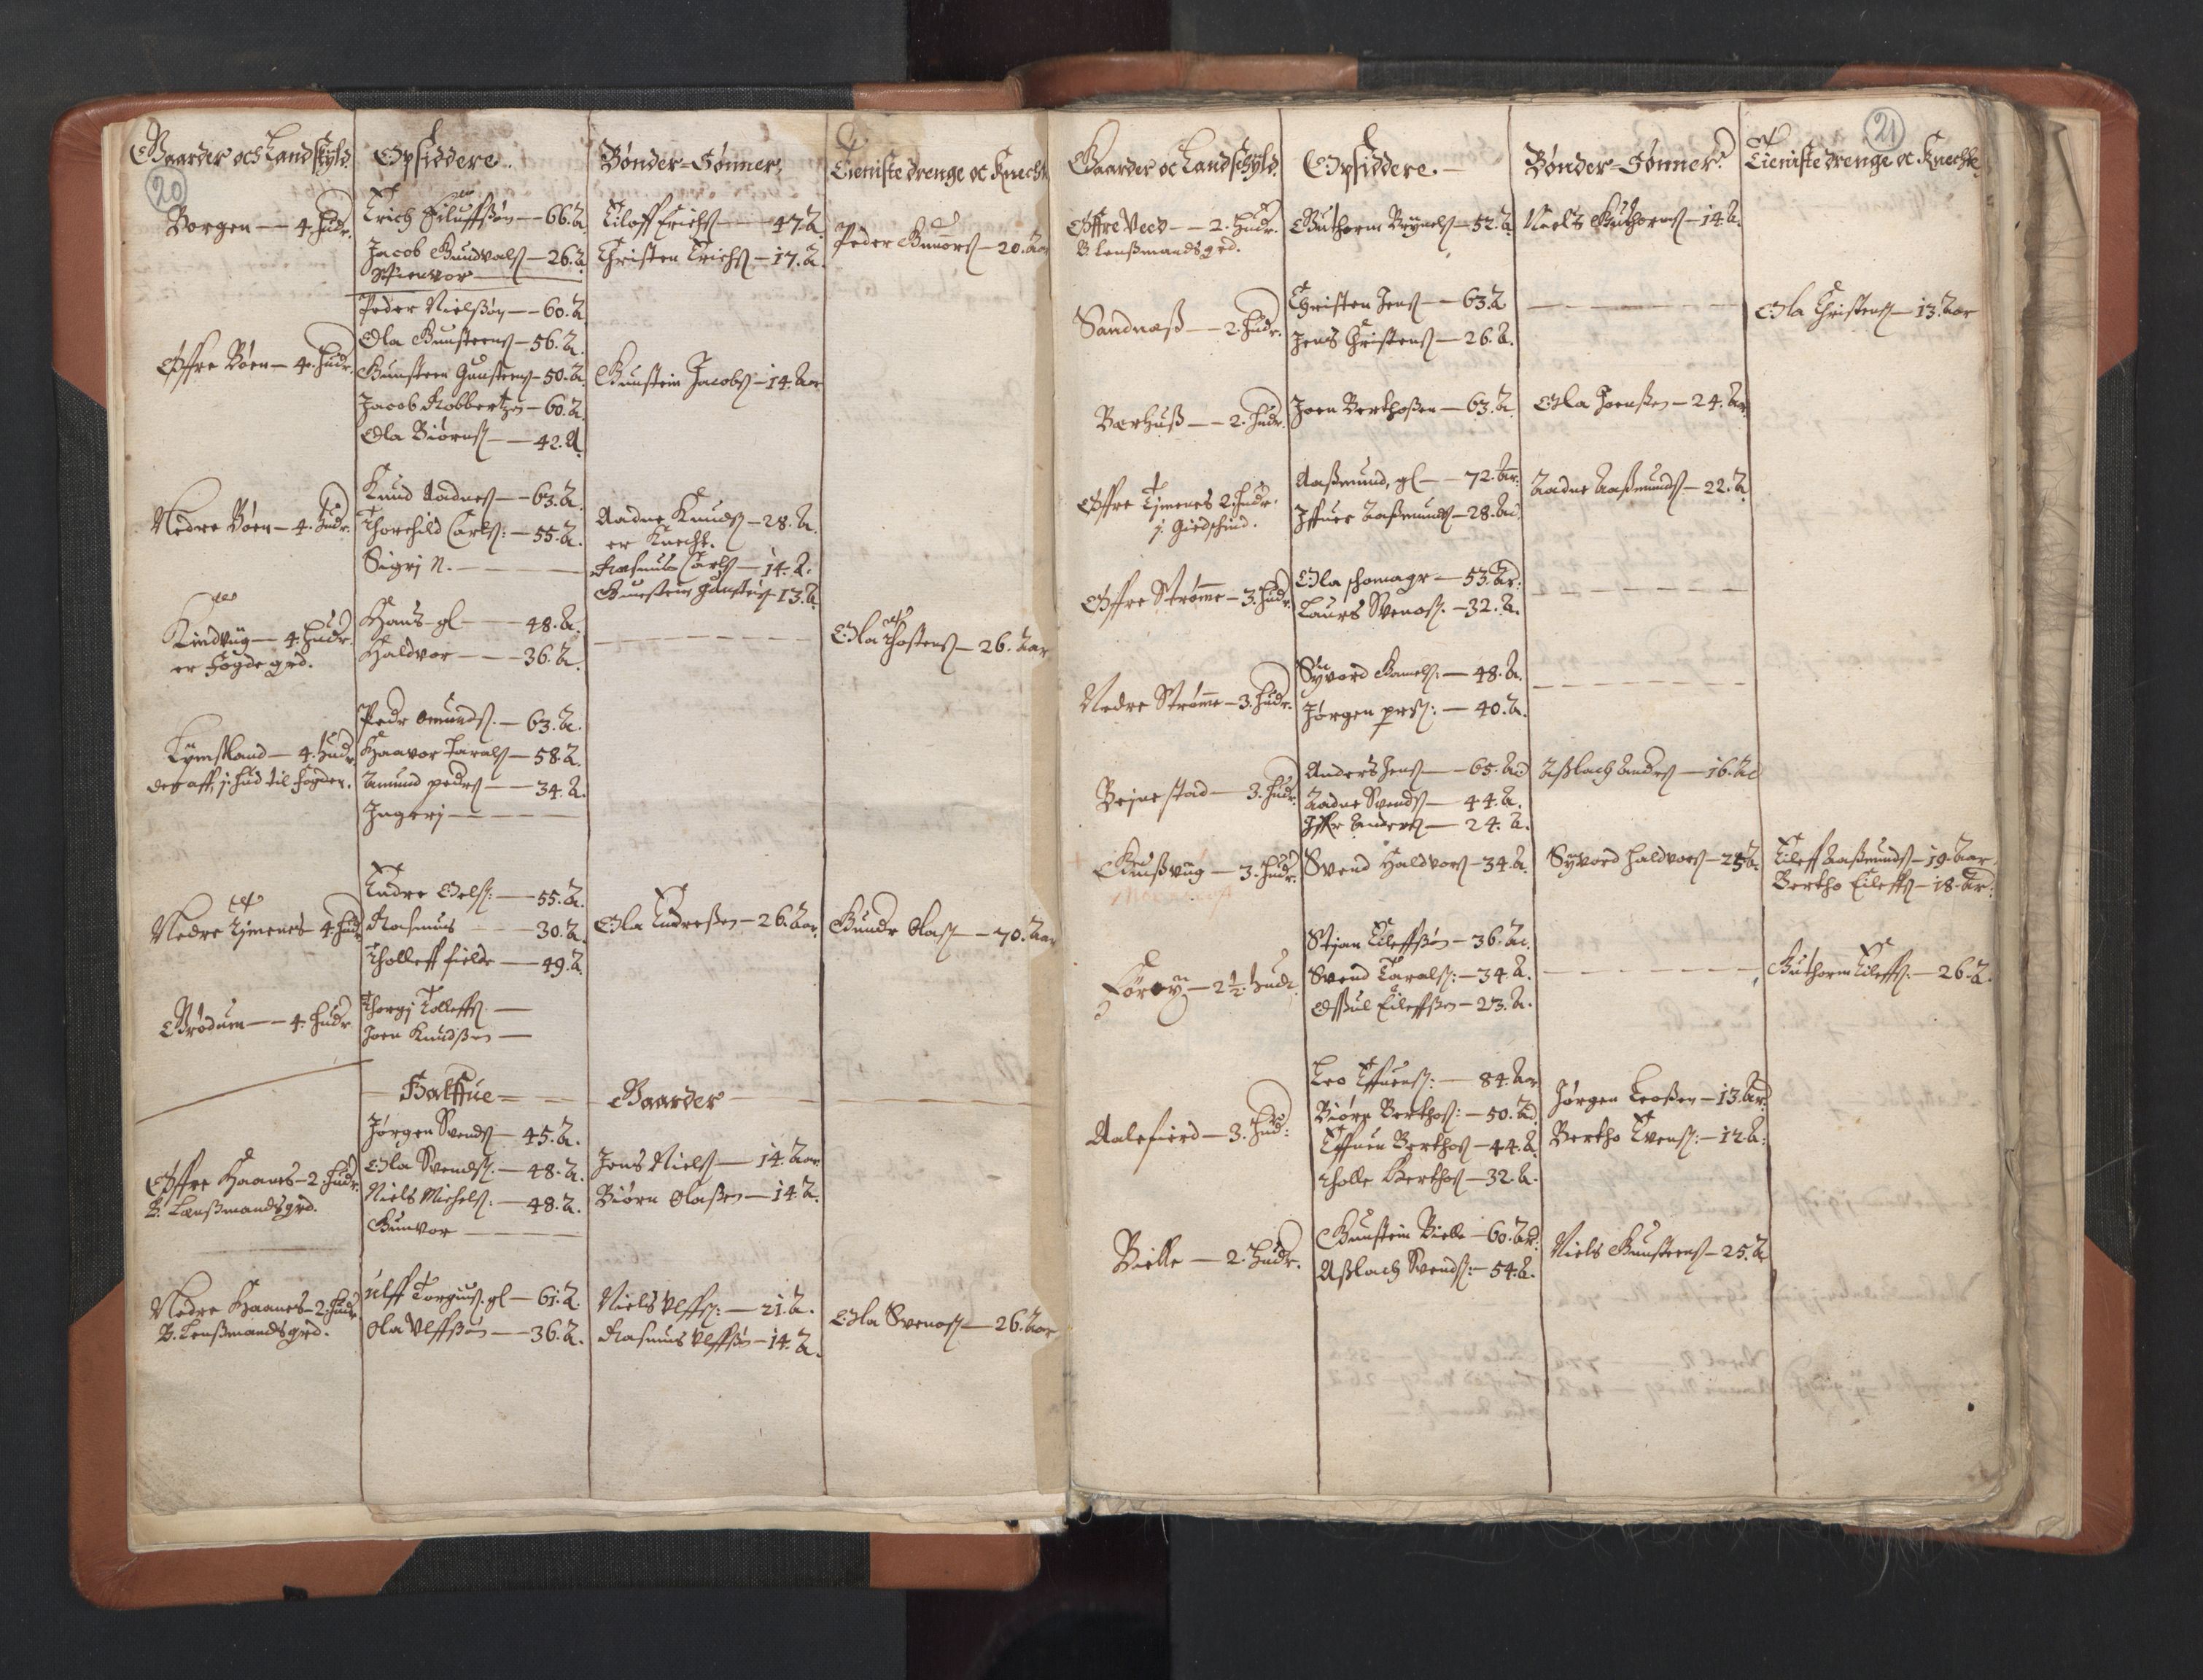 20
Gaarder och Landskyld.
Opsiddere.
Bønder-Sønner.
Tieniste drenge oc Knecht
Borgen — 4. hudr.
Erich Eiluffßøn — 66. A.
Jacob Gundvalß — 26. A.
Stienvor
Eiloff Erichß — 47. A.
Christen Erichß — 17. A.
Peder Gunorß — 20. Aar
Øffre Bøen — 4. hudr.
Peder Nielßøn — 60. A.
Ola Gunsteens — 56. A.
Gunsteen Gunsteens — 50. A.
Jacob Robbertzøn — 60. A.
Ola Biørnß — 42. A.
Gunstein Jacobß — 14. Aar
Nedre Bøen — 4. hudr.
Knud Aadneß — 63. A.
Thorchild Carlß: — 55. A.
Sigrj N. —
Aadne Knudß — 28. A.
er Knecht.
Rasmus Carlß — 14. A.
Gunstein Gunsteinß 13. A.
Kindvig — 4. hudr.
er Fogde grd.
Hans gl — 48. A.
Haldvor — 36. A.
Ola Thostensß — 26. Aar
Tymßland — 4. hud
der aff j hud til fogden.
Pedr Omundß. — 63. A.
Haavor Taralß — 58. A.
Amund pedrß — 34. A.
Ingerj —
Nedre Tjmenes — 4. hud
Endre Olß: — 55. A.
Rasmus — 30. A.
Tholleff fielde — 49. A.
Ola Endreßen — 26. Aar.
Gundr Olaß — 70. Aar
Grødum — 4. hudr
Thorgj Tolleffß —
Joen Knudßen —
Halffue — Gaarder
Øffre Haanes — 2. hudr
B. Lenßmandsgrd.
Jørgen Svendß — 45. A.
Ola Svendß. — 48. A.
Niels Michelß: — 48. A.
Gunvor —
Jens Nielß — 14. Aar
Biørn Olaßen — 14. A.
Nedre Haanes — 2. hudr
B. Lenßmandsgrd.
Ulff Torgiusß. gl — 61. A.
Ola Ulffßøn — 36. A.
Niels Ulffß: — 21. A.
Rasmus Ulffßøn — 14. A.
Ola Svenoß — 26. Aar
21
Gaarder oc Landschyld.
Opsiddere.
Bønder-Sønner.
Tieniste drenge oc Knechte
Øffre Veed — 2. hudr.
B. lenßmandsgrd.
Guthorm Brynelß — 52. A.
Niels Guthormß — 14. A.
Sandnæß — 2. hudr.
Christen Jenß — 63. A
Jens Christenß — 26. A.
Ola Christenß — 13. Aar
Bærhuß — 2. hudr.
Joen Berthoßen — 63. A.
Ola Joenßen — 24. Ar
Øffre Tjmenes 2. hudr.
j. Giedschind.
Aaßmund, gl — 72. Ar.
Iffuer Aaßmundß — 28. Ar.
Aadne Aaßmundß — 22. A
Øffre Strømme — 3. hudr.
Ola schomagr — 53. Ar:
Laurs Svenoß. — 32. A.
Nedre Strømme — 3. hudr.
Syvord Gamelß: — 48. A.
Jørgen prß: — 40. A.
Beinestad — 3. hudr.
Anders Jenß — 65. Ar
Aadne Svendß — 44. A.
Iffr Andersß — 24. A.
Aßlach Andrß — 16. Ar
Gusßvig — 3. hudr.
Svend Haldvorß — 34. A.
Syvord Haldvorß — 25 A.
Eileff Aaßmundß — 19. Aar
Bertho Eileffß — 18. Ar:
Førøy — 2 1/2 hudr.
Stjan Eileffßøn — 36. Ar.
Svend Taralß: — 34. A.
Oßul Eileffßen — 23. A.
Guthorm Eileffß. — 26. A.
Aalefierd — 3. hud:
Leo Effuenß: — 84. Aar
Biørn Berthoß: — 50. Ar
Effuen Berthoß — 44. A.
Tholle Berthoß — 32. A.
Jørgen Leoßen — 13. Ar.
Bertho Evenß: — 12. A.
Bielle — 2. hudr.
Gunstein Bielle — 60. Ar.
Aßlach Svendß: — 54. A.
Niels Gunsteenß — 25. A